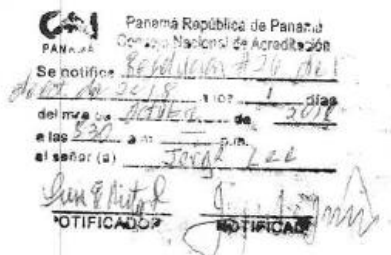 Panamá República de Panamá
PANAMÁ Consejo Nacional de Acreditación
Se notifica Resolución #26 del
de 2018 a los 1 días
del mes de octubre de 2018
a las 8:30 a.m. p.m.
al señor (a) Jorge Lee
NOTIFICADOR NOTIFICADO